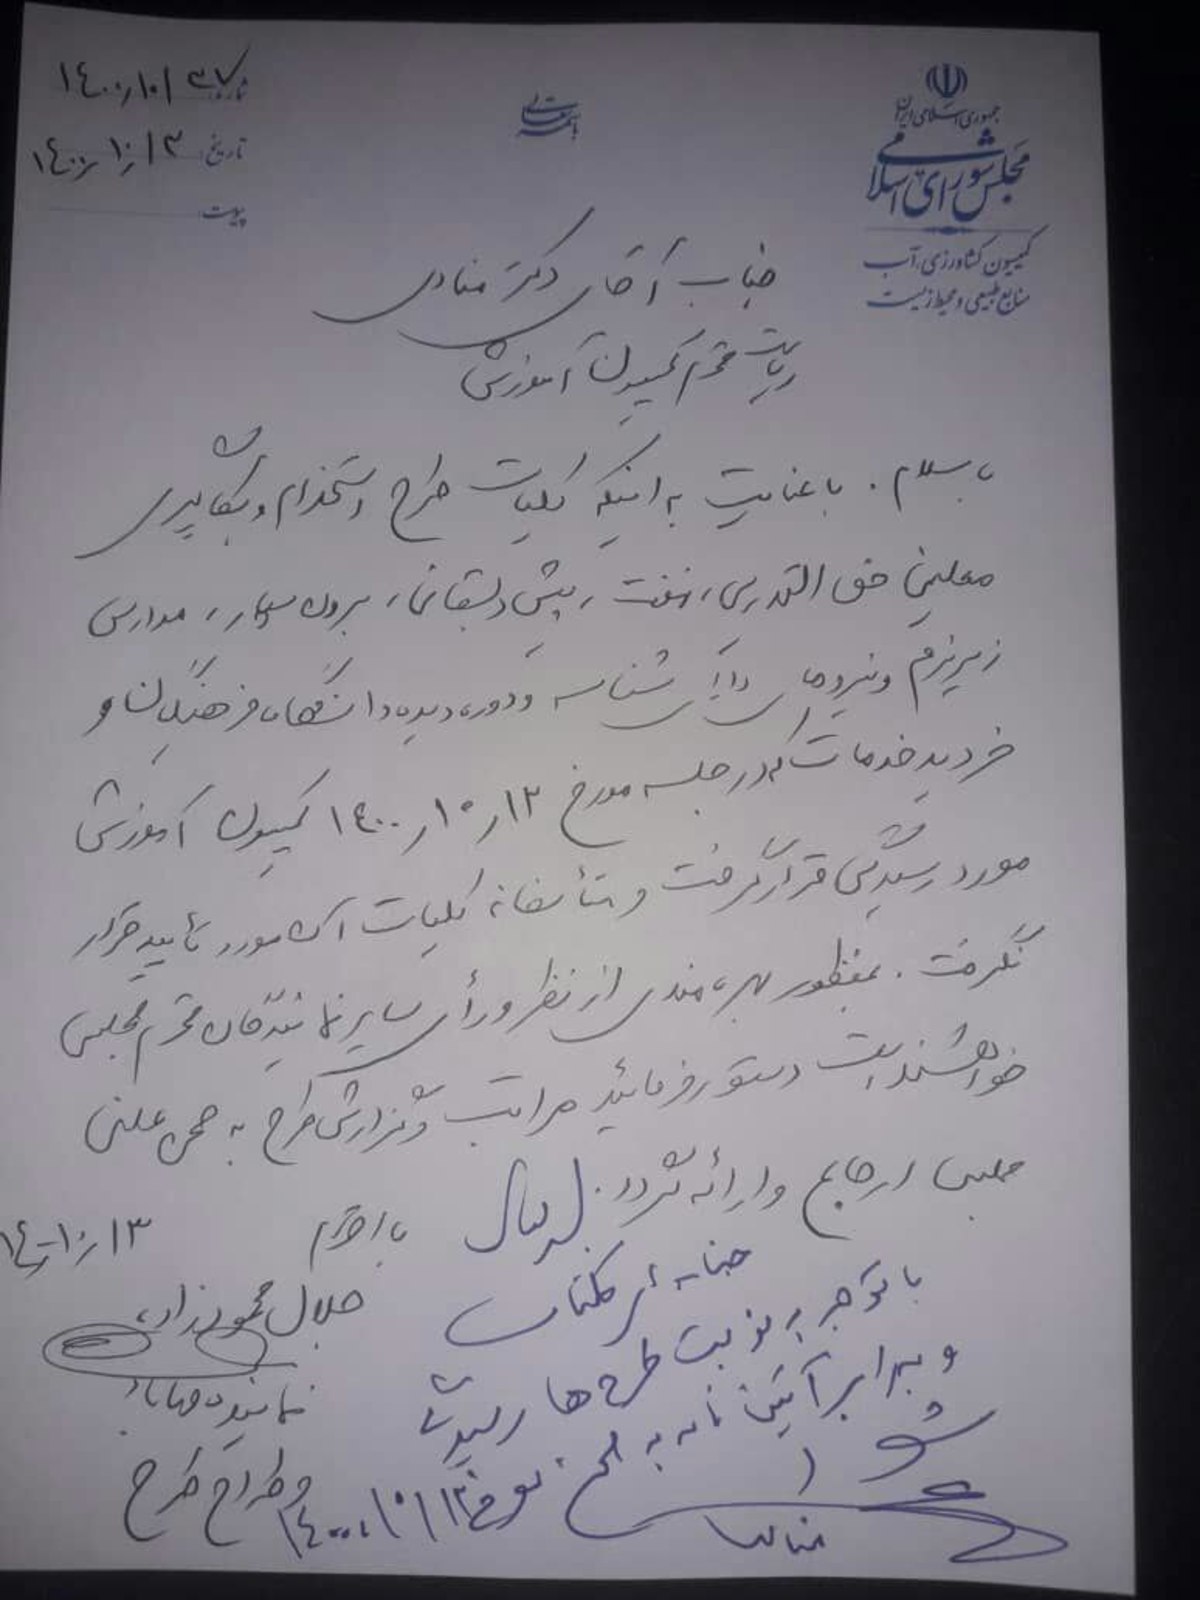 جمهوری اسلامی ایران
مجلس شورای اسلامی
کمیسیون کشاورزی، آب
منابع طبیعی و محیط زیست
باسمه تعالی
شماره: ۱۴۰۰٫۱۰/۳۷
تاریخ: ۱۴۰۰٫۱۰/۱۳
پیوست:
جناب آقای دکتر منادی
ریاست محترم کمیسیون آموزش
با سلام. با عنایت به اینکه کلیات طرح استخدام و بکارگیری
معلمین حق التدریس، نهضت، پیش دبستانی، سرود، مدارس
زیر نرم و نیروهای دارای شناسه و دوره دیده دانشگاه فرهنگیان و
خرید خدمات که در جلسه مورخ ۱۴۰۰٫۱۰٫۱۳ کمیسیون آموزش
مورد رسیدگی قرار گرفت و متأسفانه کلیات آن مورد تأیید قرار
نگرفت. بمنظور بهره مندی از نظر و رأی سایر نمایندگان محترم مجلس
خواهشمند است دستور فرمائید مراتب و گزارش طرح به صحن علنی
مجلس ارجاع و ارائه گردد.
با احترام
۱۴۰۰٫۱۰٫۱۳
جلال محمودزاده
نماینده مهاباد
و طراح طرح
با توجه به نوبت طرح ها رسیدگی
و برابر آئین نامه به
منادی
۱۴۰۰٫۱۰/۱۳